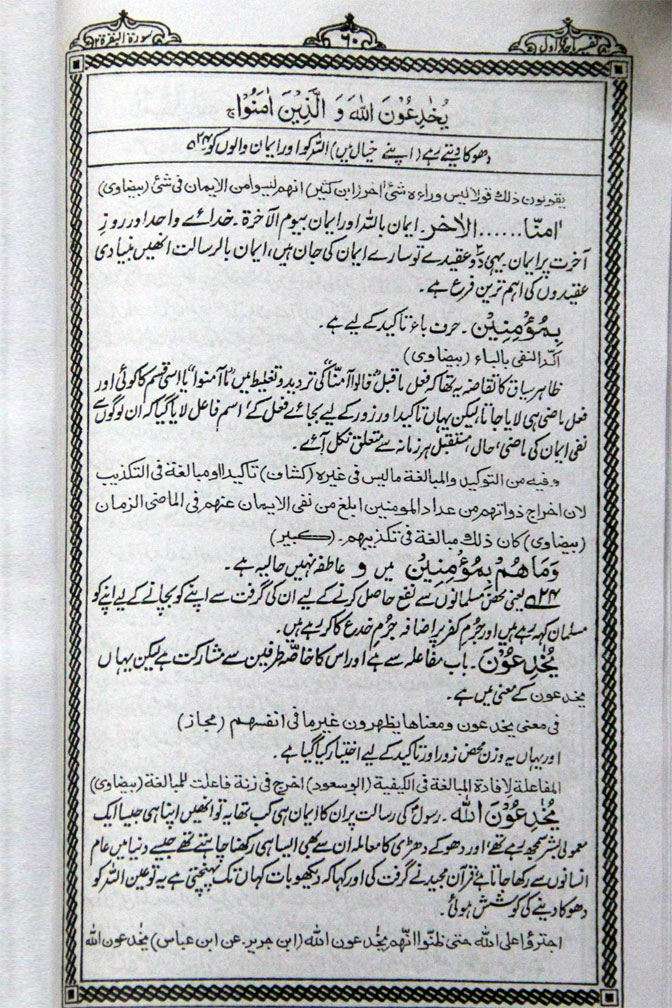 تفسیر ماجدی اول
۶۰
سورۃ البقرۃ ۲
یُخٰدِعُوْنَ اللّٰهَ وَ الَّذِیْنَ اٰمَنُوْا ۚ
دھوکا دیتے رہے (اپنے خیال میں) اللہ کو اور ایمان والوں کو ۲۴؎
یقولون ذلک قولا لیس وراءہ شئ اٰخر (ابن کثیر) انھم لیسوا من الایمان فی شئ (بیضاوی)
اٰمنّا ...... الاٰخر۔ ایمان باللہ اور ایمان بیوم الآخرۃ۔ خدائے واحد اور روزِ
آخرت پر ایمان۔ یہی دو عقیدے تو سارے ایمان کی جان ہیں، ایمان بالرسالت انھیں بنیادی
عقیدوں کی اہم ترین فرع ہے۔
بِمُؤْمِنِیْنَ۔ حرف باء تاکید کے لیے ہے۔
اکّد النفی بالباء (بیضاوی)
ظاہر سیاق کا تقاضہ یہ تھا کہ فعل ماقبل ”قالوا آمنّا“ کی تردید و تغلیط میں ”ما آمنوا“ یا اسی قسم کا کوئی اور
فعل ماضی ہی لایا جاتا، لیکن یہاں تاکید اور زور کے لیے بجائے فعل کے، اسم فاعل لایا گیا کہ ان لوگوں سے
نفی ایمان کی ماضی، حال، مستقبل ہر زمانہ سے متعلق نکل آئے۔
وفیہ من التوکید والمبالغة مالیس فی غیرہ (کشاف) تاکیدا او مبالغة فی التکذیب
لان اخراج ذواتھم من عداد المومنین ابلغ من نفی الایمان عنھم فی الماضی الزمان
(بیضاوی) کان ذلک مبالغة فی تکذیبھم۔ (کبیر)
وَمَا هُمْ بِمُؤْمِنِیْنَ میں و عاطفہ نہیں حالیہ ہے۔
۲۴؎ یعنی محض مسلمانوں سے نفع حاصل کرنے کے لیے ان کی گرفت سے اپنے کو بچانے کے لیے اپنے کو
مسلمان کہہ رہے ہیں اور جرم کفر پر اضافہ جرم خدع کا کر رہے ہیں۔
یُخٰدِعُوْنَ۔ باب مفاعلہ سے ہے اور اس کا خاصّہ طرفین سے مشارکت ہے لیکن یہاں
یخدعون کے معنی میں ہے۔
فی معنی یخدعون ومعناھا یظھرون غیر ما فی انفسھم (مجاز)
اور یہاں یہ وزن محض زور اور تاکید کے لیے اختیار کیا گیا ہے۔
المفاعلة لافادة المبالغة فی الکیفیة (ابوسعود) اخرج فی زنة فاعلت للمبالغة (بیضاوی)
یُخٰدِعُوْنَ اللّٰهَ۔ رسولؐ کی رسالت پر ان کا ایمان ہی کب تھا یہ تو انھیں اپنا ہی جیسا ایک
معمولی بشر سمجھ رہے تھے، اور دھوکے دھڑی کا معاملہ ان سے بھی ایسا ہی رکھنا چاہتے تھے جیسے دنیا میں عام
انسانوں سے رکھا جاتا ہے، قرآن مجید نے گرفت کی اور کہا کہ دیکھو بات کہاں تک پہنچتی ہے یہ تو عین اللہ کو
دھوکا دینے کی کوشش ہوئی۔
اجترؤا علی اللہ حتی ظنّوا انّھم یخدعون اللہ (ابن جریر۔ عن ابن عباس) یخدعون اللہ